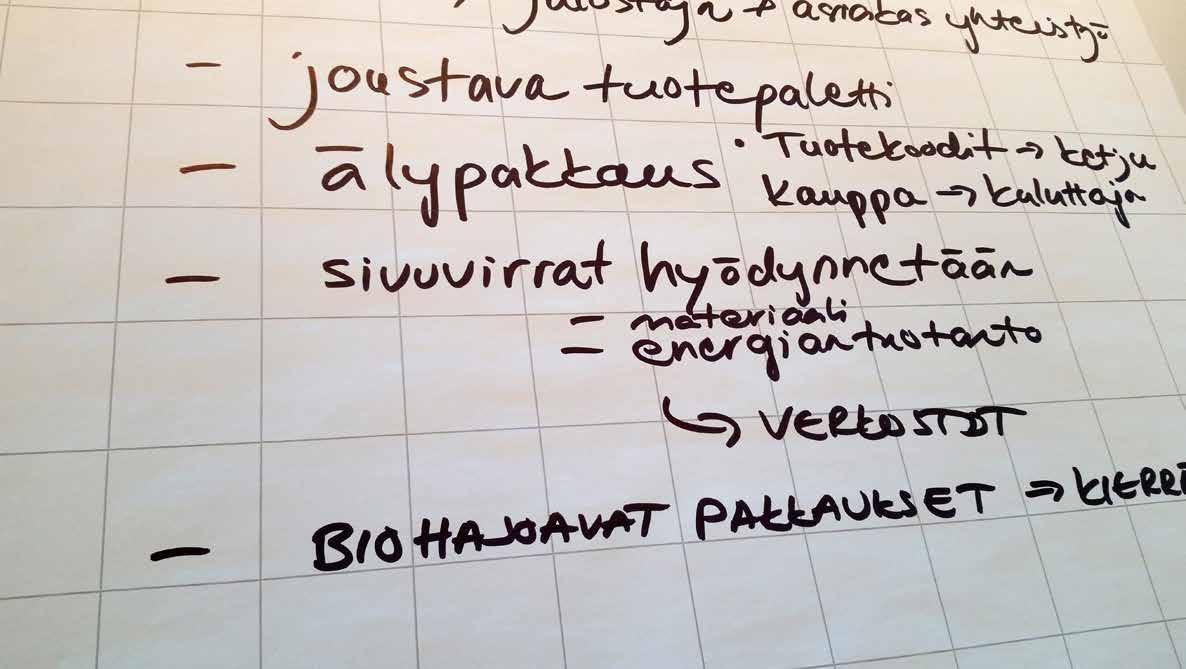 jalostaja + asiakas yhteistyö
- joustava tuotepaletti
- älypakkaus • Tuotekoodit → ketju
kauppa → kuluttaja
- sivuvirrat hyödynnetään
- materiaali
- energiantuotanto
↳ VERKOSTOT
- BIOHAJOAVAT PAKKAUKSET ⇒ KIERRÄ